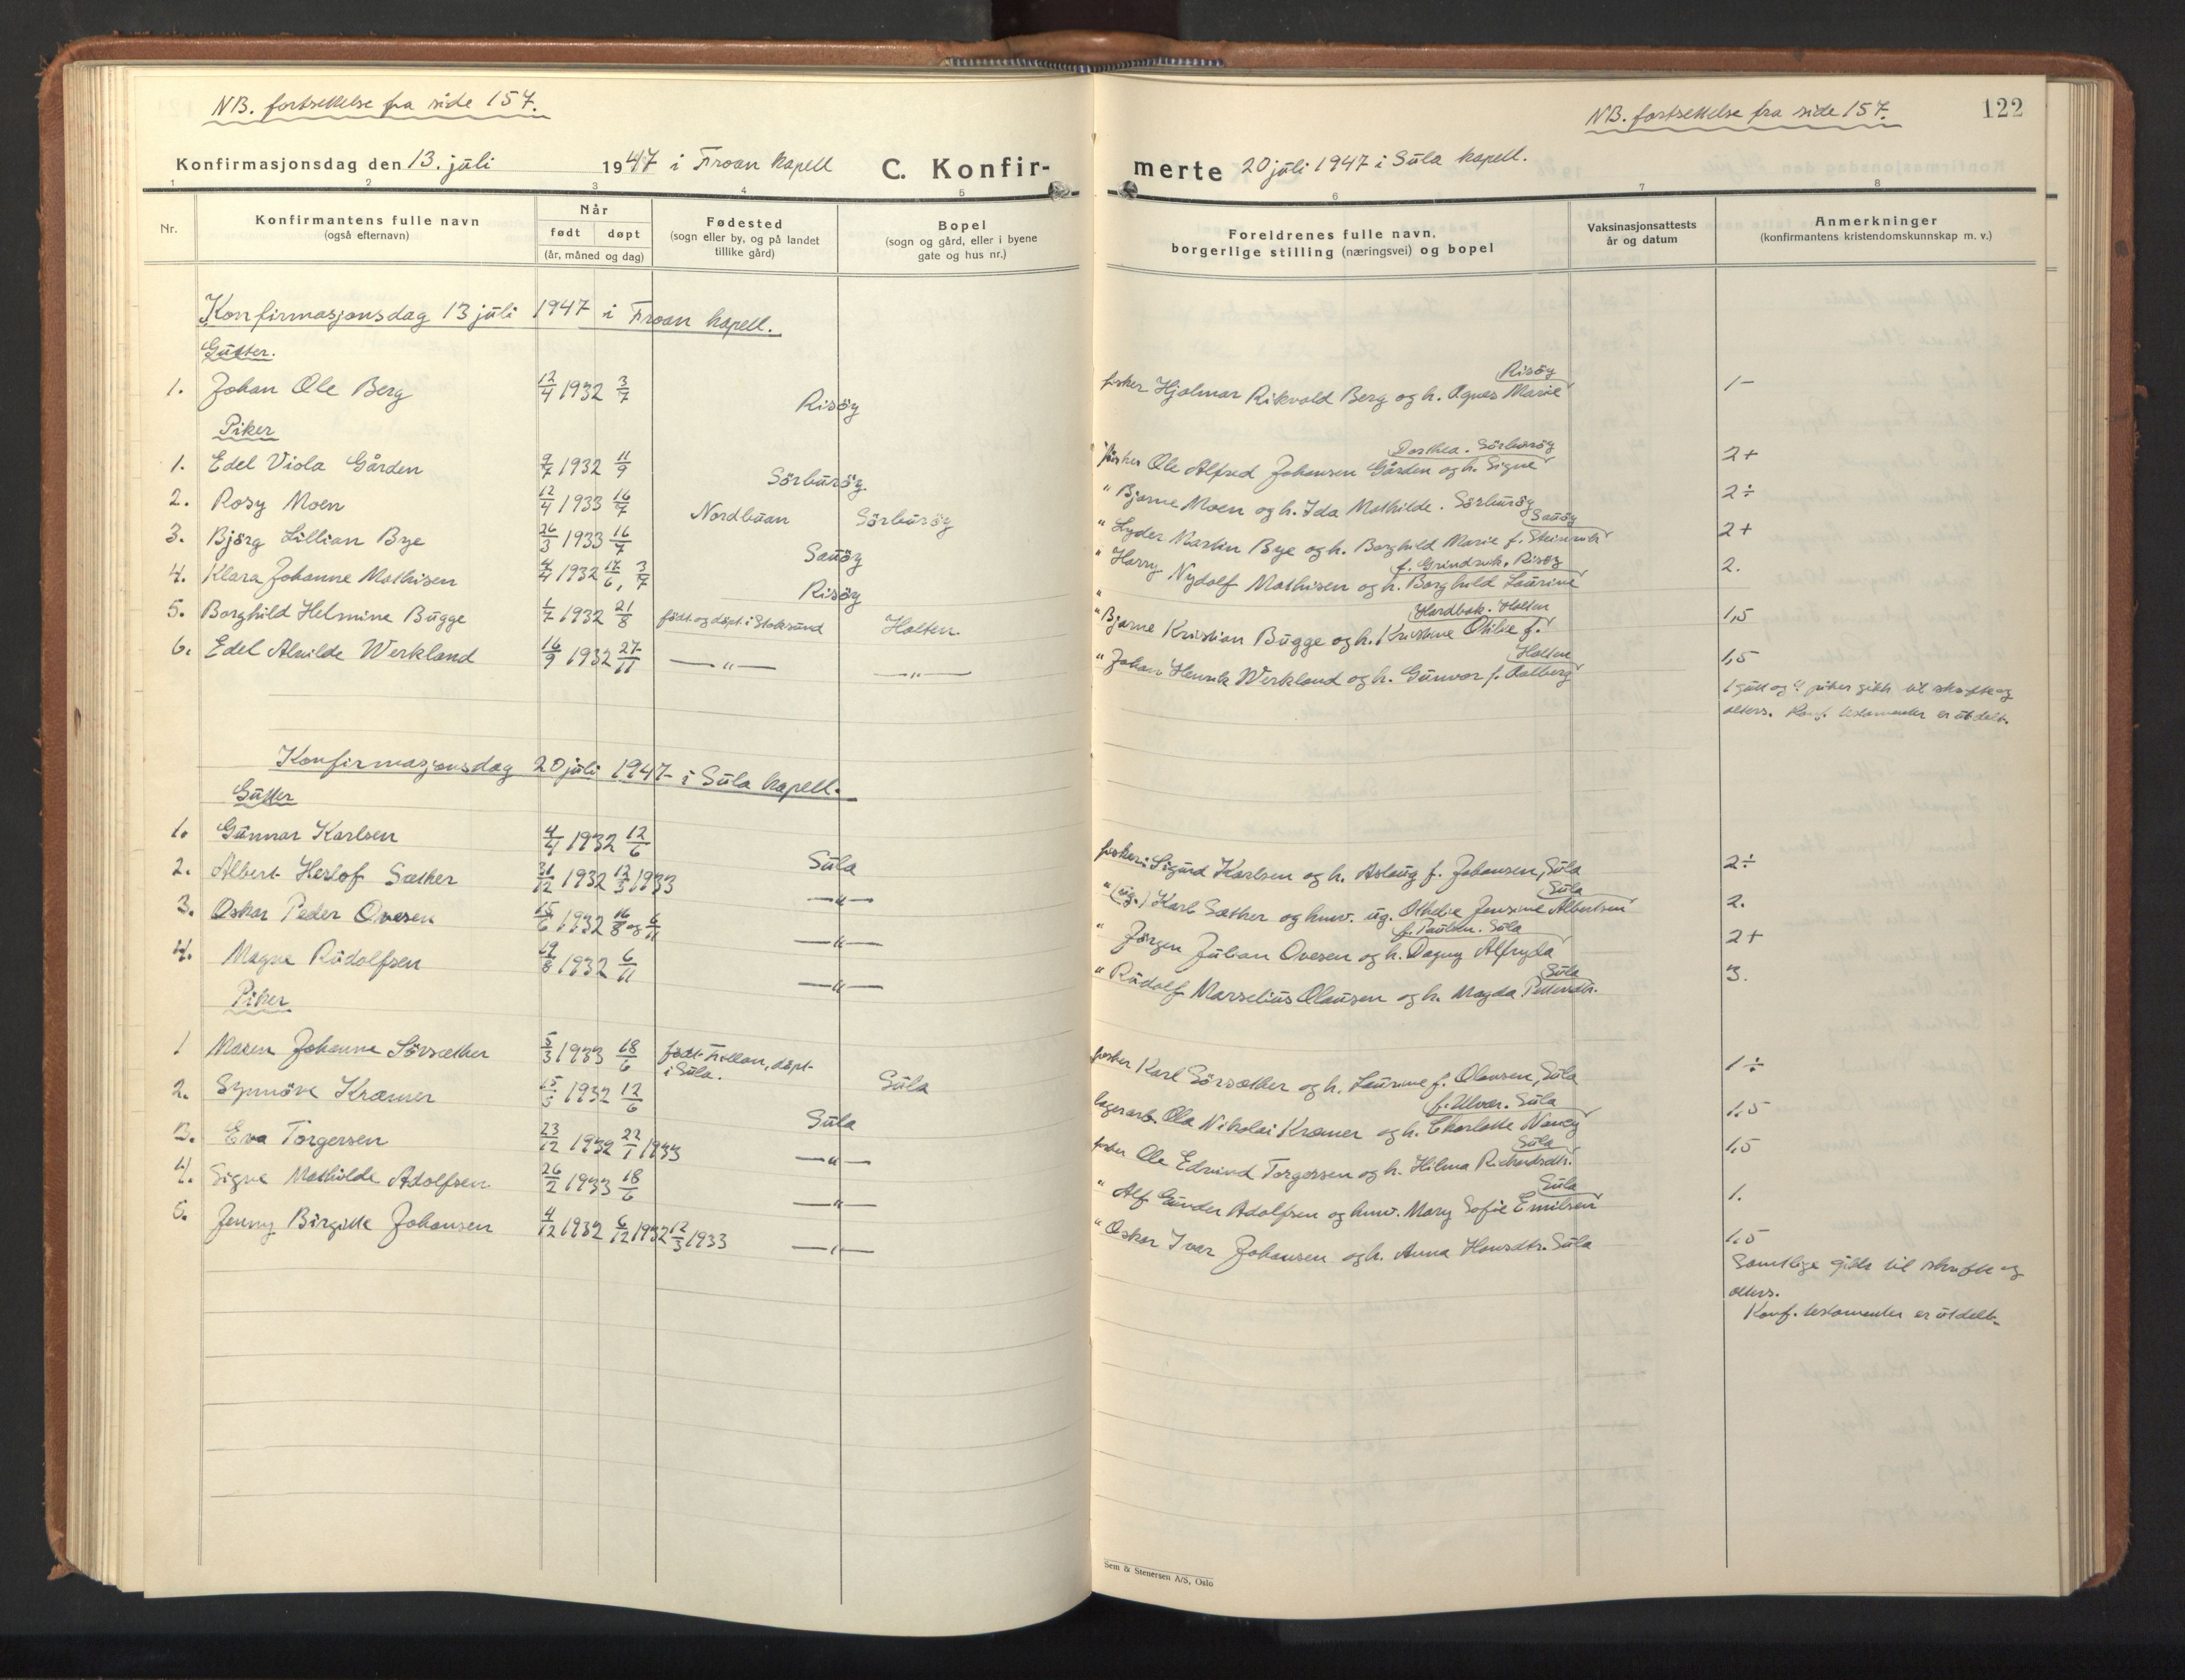 NB. fortsettelse fra side 157.
Konfirmasjonsdag den 13. juli 1947 i Froan kapell C. Konfir-
1 2 3 4 5
Nr.
Konfirmantens fulle navn
(også efternavn)
Når
født døpt
(år, måned og dag)
Fødested
(sogn eller by, og på landet
tillike gård)
Bopel
(sogn og gård, eller i byene
gate og hus nr.)
Konfirmasjonsdag 13 juli 1947 i Froan kapell.
Gutter.
1. Johan Ole Berg 12/4 1932 3/7 Risöy
Piker
1. Edel Viola Gården 9/7 1932 11/9 Sörburöy
2. Rosy Moen 12/4 1933 16/7 Nordbuan Sörburöy
3. Björg Lillian Bye 26/3 1933 16/7 Sauöy
4. Klara Johanne Mathisen 4/4 1932 17/6, 3/7 Risöy
5. Borghild Helmine Bugge 1/7 1932 21/8 födt og döpt i Stoksund Halten.
6. Edel Alvilde Werkland 16/9 1932 27/11 —"— —"—
Konfirmasjonsdag 20 juli 1947 i Sula kapell.
Gutter
1. Gunnar Karlsen 4/4 1932 12/6 Sula
2. Albert Herlof Sæther 31/12 1932 12/3 1933 —"—
3. Oskar Peder Ovesen 15/6 1932 16/8 og 6/11 —"—
4. Magne Rudolfsen 19/8 1932 6/11 —"—
Piker
1 Maren Johanne Sörsæther 5/3 1933 18/6 födt Frøllan, döpt
i Sula. Sula
2. Synnöve Kræmer 15/5 1932 12/6 Sula
3. Eva Torgersen 23/12 1932 22/1 1933 —"—
4. Signe Mathilde Adolfsen 26/2 1933 18/6 —"—
5. Jenny Birgitte Johansen 4/12 1932 6/12 1932 12/3 1933 —"—
NB. fortsettelse fra side 157. 122
merte 20 juli 1947 i Sula kapell.
6 7 8
Foreldrenes fulle navn,
borgerlige stilling (næringsvei) og bopel
Vaksinasjonsattests
år og datum
Anmerkninger
(konfirmantens kristendomskunnskap m. v.)
Risöy
fisker Hjalmar Rikvold Berg og h. Agnes Marie 1-
Dorthea. Sörburöy
fisker Ole Alfred Johansen Gården og h. Signe 2+
" Bjarne Moen og h. Ida Mathilde. Sörburöy 2÷
Sauöy
" Lyder Martin Bye og h. Borghild Marie f. Steinvik 2+
f. Grindvik, Risöy
" Harry Nydolf Mathisen og h. Borghild Laurine 2.
Hardbak. Halten
" Bjarne Kristian Bugge og h. Kristine Otilie f. 1,5
Halten
" Johan Henrik Werkland og h. Gunvor f. Aalberg 1,5
1 gutt og 4 piker gikk til skrifte og
alters. Konf. testamenter er utdelt.
fisker: Sigurd Karlsen og h. Aslaug f. Johansen, Sula 2÷
Sula
" (ug.) Karl Sæther og hmv. ug. Othelie Jensine Albertsen 2.
f. Paulsen. Sula
" Jörgen Julian Ovesen og h. Dagny Alfryda 2+
Sula
" Rudolf Marselius Olausen og h. Magda Pettersdtr. 3.
fisker Karl Sörsæther og h. Laurine f. Olausen, Sula 1÷
f. Ulvær. Sula
lagerarb. Ola Nikolai Kræmer og h. Charlotte Nancy 1,5
Sula
fisker Ole Edvind Torgersen og h. Hilma Richardsdtr. 1,5
Sula
" Alf Gunder Adolfsen og hmv. Mary Sofie Emilsen 1.
" Oskar Ivar Johansen og h. Anna Hansdtr. Sula 1,5
Samtlige gikk til skrifte og
alters.
Konf. testamenter er utdelt.
Sem & Stenersen A/S, Oslo